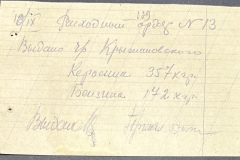 19/IX Расходный ордер N 13
139
Выдано гр. Крыжановского
Керосина 357 кгр
Бензина 142 кгр
Выдал Принял